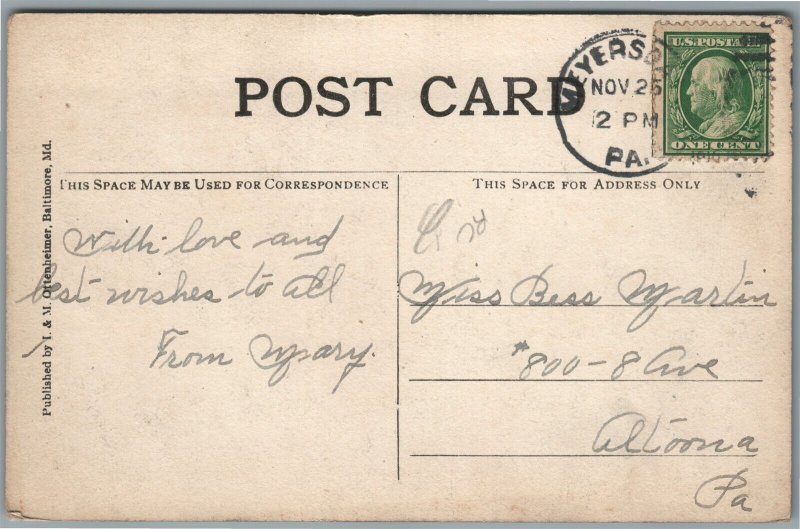 POST CARD
MEYERS
NOV 26
12 PM
PA.
U.S. POSTA
ONE CENT
THIS SPACE MAY BE USED FOR CORRESPONDENCE
THIS SPACE FOR ADDRESS ONLY
Published by I. & M. Ottenheimer, Baltimore, Md.
With love and
best wishes to all
From Mary.
Miss Bess Martin
#800-8 Ave
Altoona
Pa